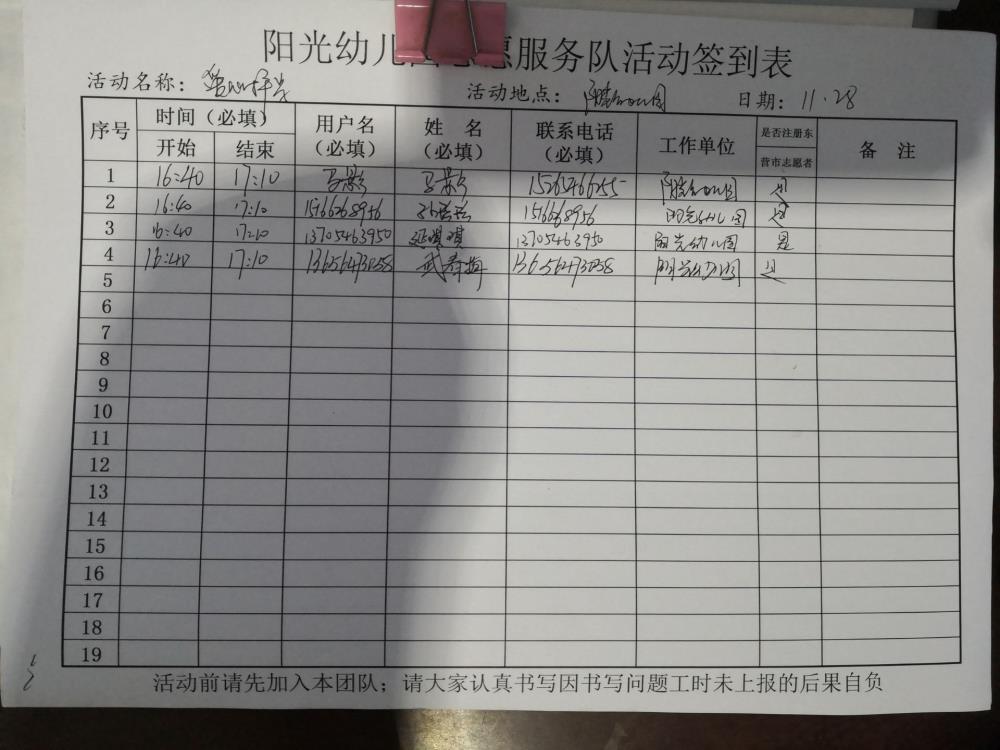 阳光幼儿 愿服务队活动签到表
活动名称： 活动地点： 阳光幼儿园 日期：11.28
序号 时间（必填） 用户名（必填） 姓 名（必填） 联系电话（必填） 工作单位 是否注册东营市志愿者 备 注
开始 结束
1 16:40 17:10 马影 马影 15263466255 阳光幼儿园 是
2 16:40 17:10 15166268956 阳光幼儿园 是
3 16:40 17:10 13705463950 延琪琪 13705463950 阳光幼儿园 是
4 16:40 17:10 13656473058 武春梅 13656473058 阳光幼儿园 是
5
6
7
8
9
10
11
12
13
14
15
16
17
18
19
活动前请先加入本团队；请大家认真书写因书写问题工时未上报的后果自负